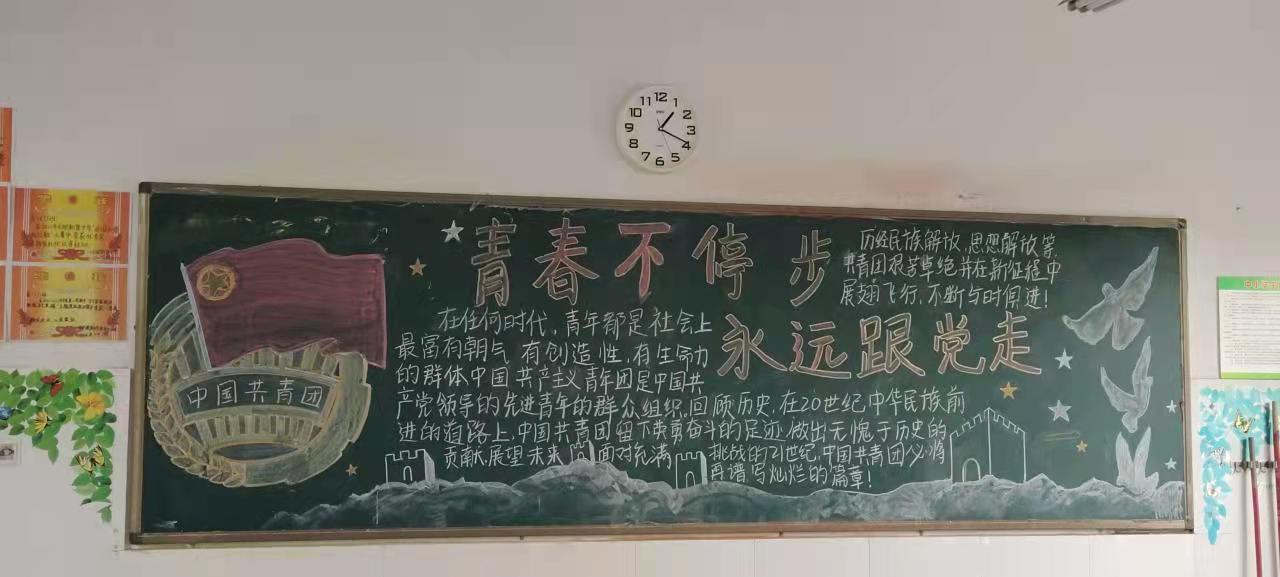 12
1
2
3
4
5
6
7
8
9
10
11
青春不停步
历经民族解放、思想解放等,
共青团艰苦卓绝并在新征程中
展翅飞行,不断与时俱进!
永远跟党走
中国共青团
在任何时代,青年都是社会上
最富有朝气、有创造性,有生命力
的群体中国共产主义青年团是中国共
产党领导的先进青年的群众组织.回顾历史,在20世纪中华民族前
进的道路上,中国共青团留下英勇奋斗的足迹,做出无愧于历史的
贡献.展望未来,面对充满挑战的21世纪,中国共青团必将
再谱写灿烂的篇章!